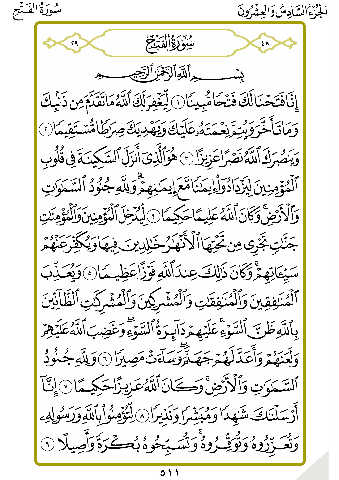 الجزء السادس والعشرون سورة الفتح
٤٨ سُورَةُ الفَتْحِ ٢٩
بِسْمِ اللَّهِ الرَّحْمَٰنِ الرَّحِيمِ
إِنَّا فَتَحْنَا لَكَ فَتْحًا مُّبِينًا ۝١ لِّيَغْفِرَ لَكَ اللَّهُ مَا تَقَدَّمَ مِن ذَنۢبِكَ
وَمَا تَأَخَّرَ وَيُتِمَّ نِعْمَتَهُۥ عَلَيْكَ وَيَهْدِيَكَ صِرَٰطًا مُّسْتَقِيمًا ۝٢
وَيَنصُرَكَ اللَّهُ نَصْرًا عَزِيزًا ۝٣ هُوَ الَّذِىٓ أَنزَلَ السَّكِينَةَ فِى قُلُوبِ
الْمُؤْمِنِينَ لِيَزْدَادُوٓا۟ إِيمَٰنًا مَّعَ إِيمَٰنِهِمْ ۗ وَلِلَّهِ جُنُودُ السَّمَٰوَٰتِ
وَالْأَرْضِ ۚ وَكَانَ اللَّهُ عَلِيمًا حَكِيمًا ۝٤ لِّيُدْخِلَ الْمُؤْمِنِينَ وَالْمُؤْمِنَٰتِ
جَنَّٰتٍ تَجْرِى مِن تَحْتِهَا الْأَنْهَٰرُ خَٰلِدِينَ فِيهَا وَيُكَفِّرَ عَنْهُمْ
سَيِّـَٔاتِهِمْ ۚ وَكَانَ ذَٰلِكَ عِندَ اللَّهِ فَوْزًا عَظِيمًا ۝٥ وَيُعَذِّبَ
الْمُنَٰفِقِينَ وَالْمُنَٰفِقَٰتِ وَالْمُشْرِكِينَ وَالْمُشْرِكَٰتِ الظَّآنِّينَ
بِاللَّهِ ظَنَّ السَّوْءِ ۚ عَلَيْهِمْ دَآئِرَةُ السَّوْءِ ۖ وَغَضِبَ اللَّهُ عَلَيْهِمْ
وَلَعَنَهُمْ وَأَعَدَّ لَهُمْ جَهَنَّمَ ۖ وَسَآءَتْ مَصِيرًا ۝٦ وَلِلَّهِ جُنُودُ
السَّمَٰوَٰتِ وَالْأَرْضِ ۚ وَكَانَ اللَّهُ عَزِيزًا حَكِيمًا ۝٧ إِنَّآ
أَرْسَلْنَٰكَ شَٰهِدًا وَمُبَشِّرًا وَنَذِيرًا ۝٨ لِّتُؤْمِنُوا۟ بِاللَّهِ وَرَسُولِهِۦ
وَتُعَزِّرُوهُ وَتُوَقِّرُوهُ ۚ وَتُسَبِّحُوهُ بُكْرَةً وَأَصِيلًا ۝٩
٥١١